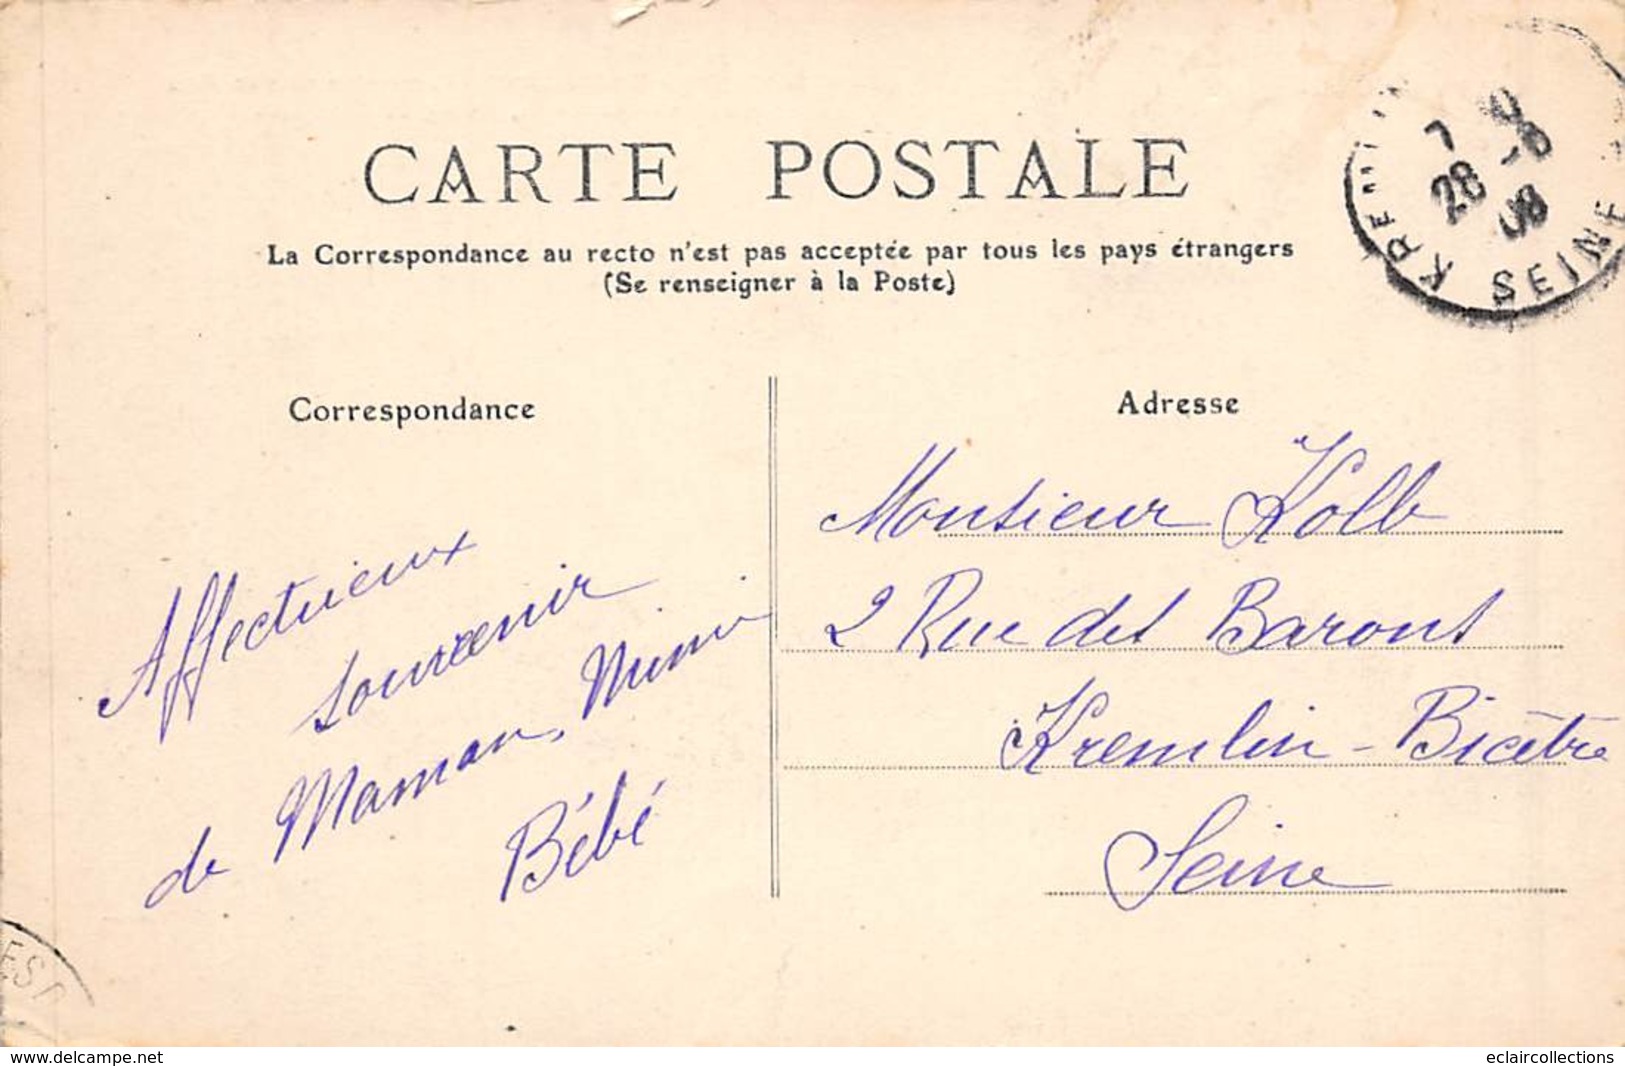 CARTE POSTALE
La Correspondance au recto n'est pas acceptée par tous les pays étrangers
(Se renseigner à la Poste)
KREMLIN
7
28 -8
08
SEINE
Correspondance
Affectueux
souvenir
de Maman, Mimi
Bébé
Adresse
Monsieur Kolb
2 Rue des Barons
Kremlin-Bicêtre
Seine
www.delcampe.net
eclaircollections